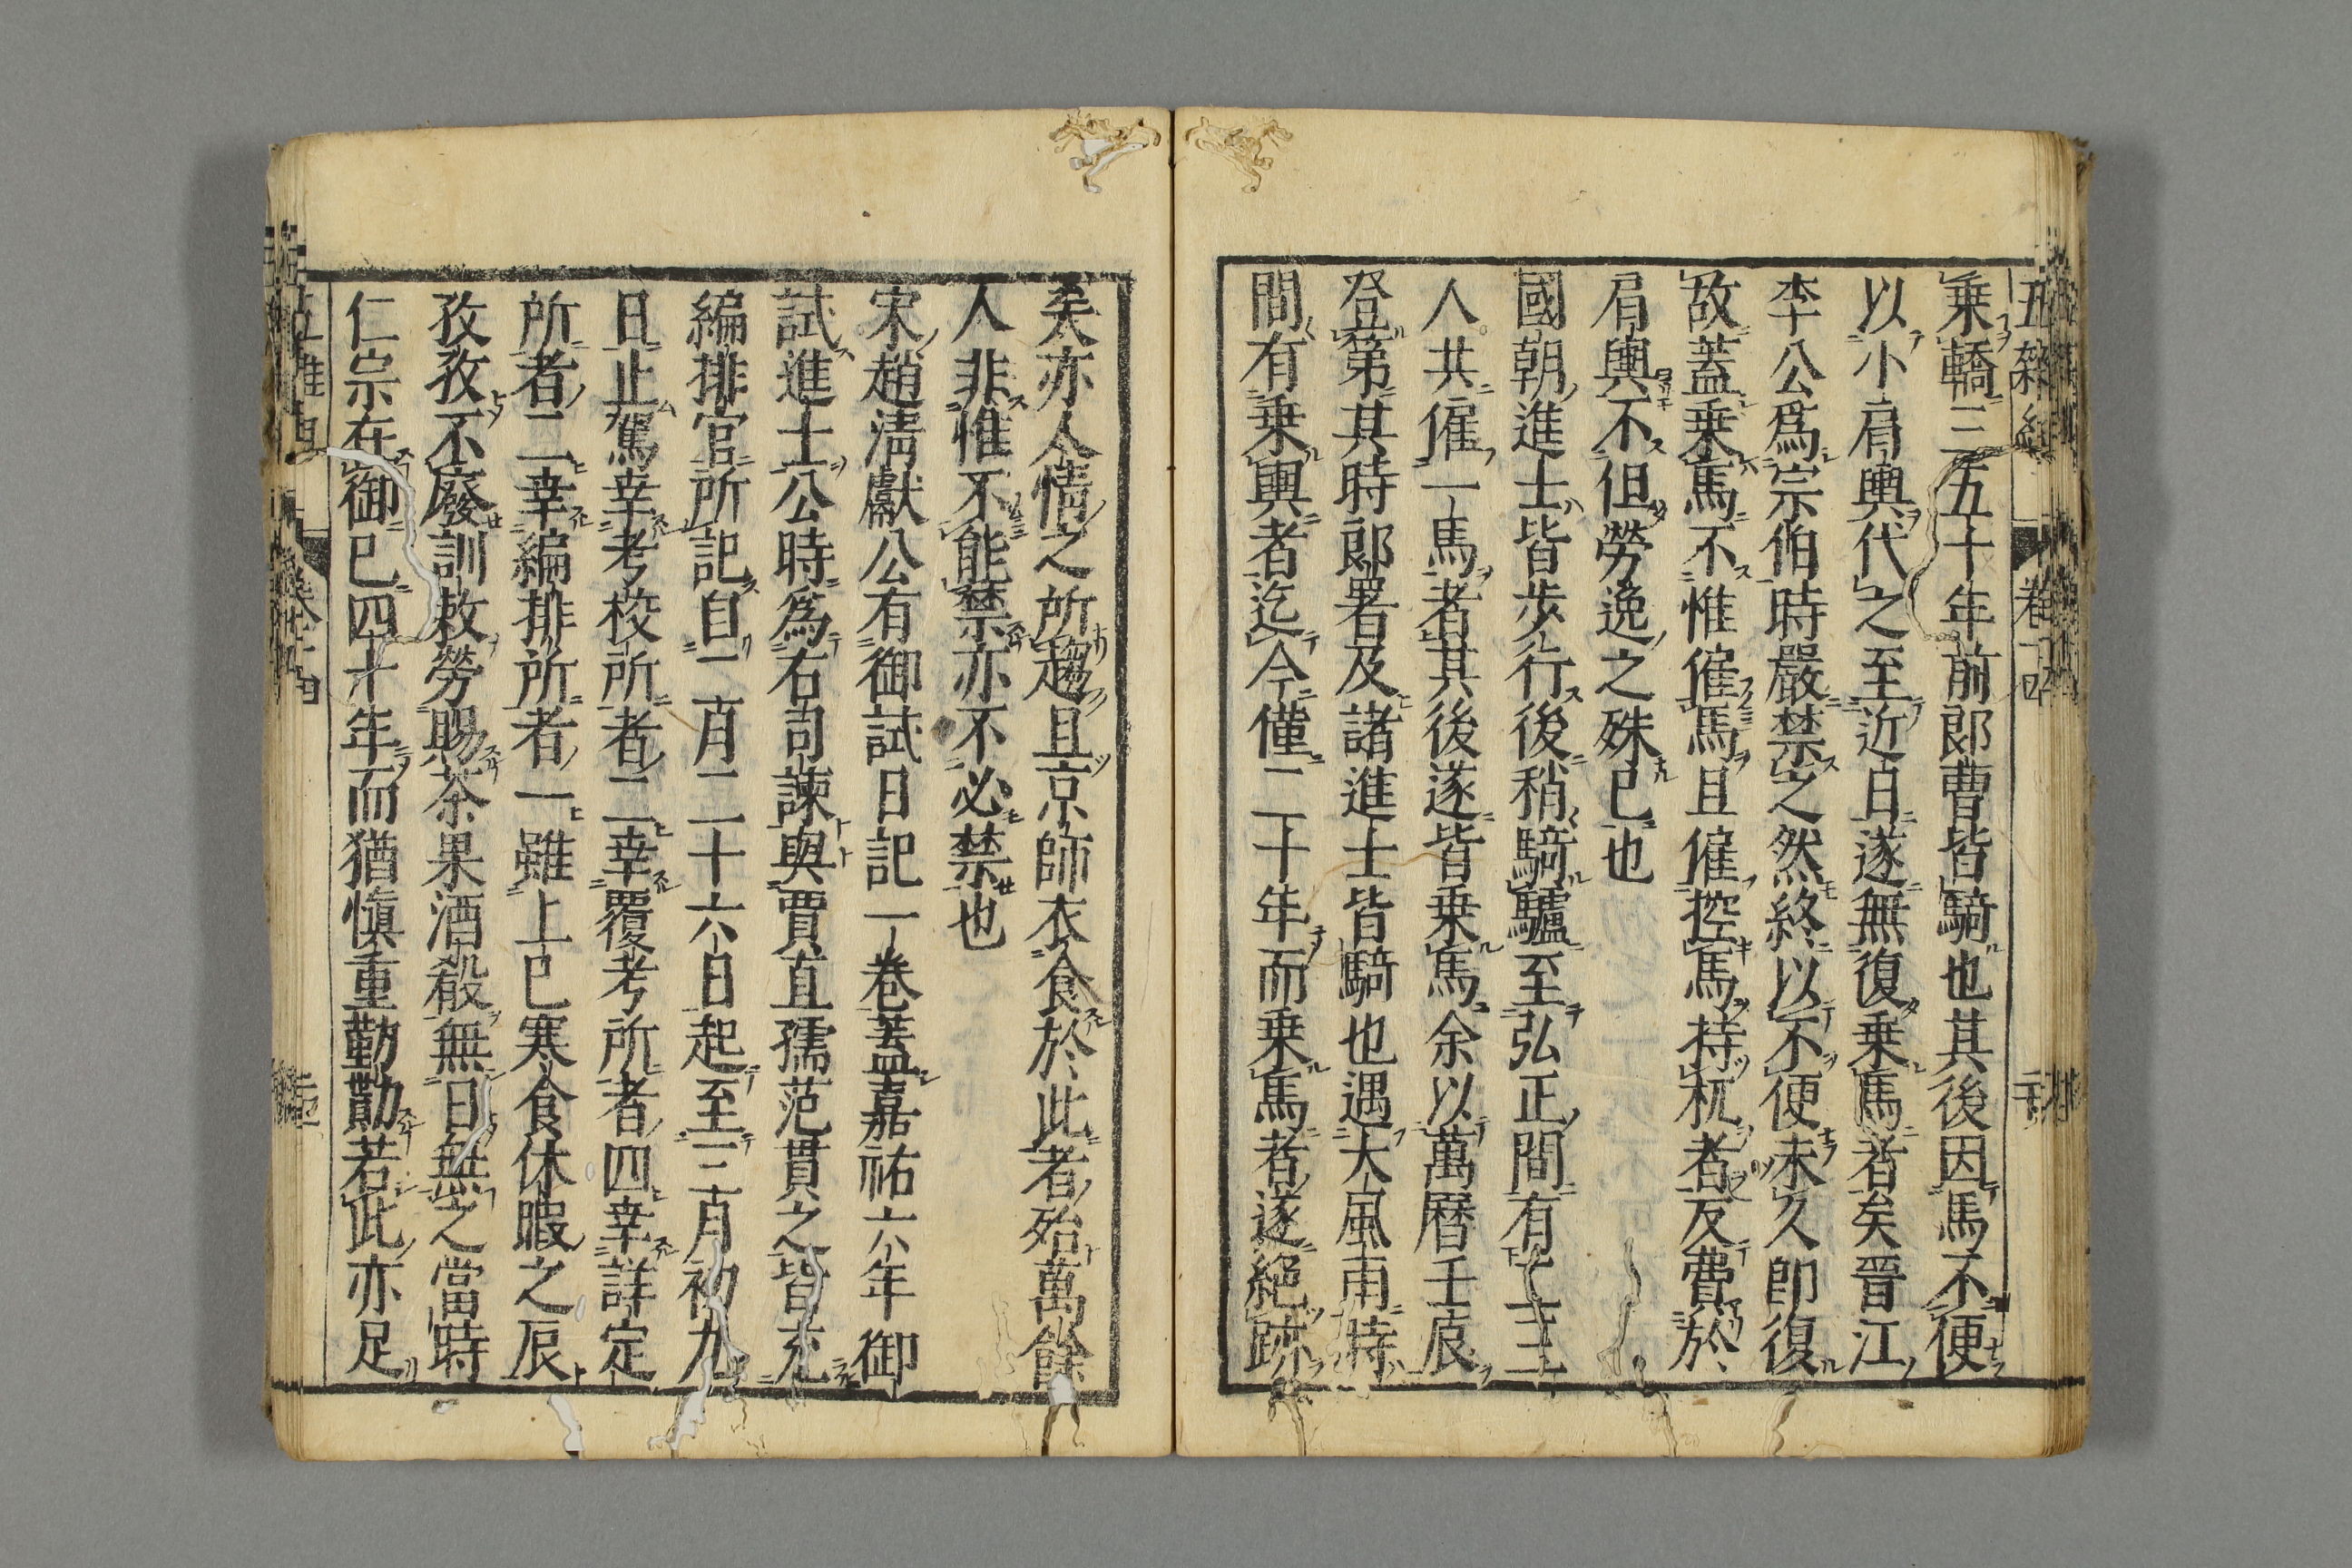 五雜組 卷十四
乗轎三五十年前郎曹皆騎也其後因馬不便
以小肩輿代之至近日遂無復乗馬者矣晉江
李公爲宗伯時嚴禁之然終以不便未久卽復
故蓋乗馬不惟僱馬且僱控馬持杌者反費於
肩輿不但勞逸之殊已也
國朝進士皆歩行後稍騎驢至弘正間有二三
人共僱一馬者其後遂皆乗馬余以萬曆壬辰
登第其時郎署及諸進士皆騎也遇大風雨時
間有乗輿者迄今僅二十年而乗馬者遂絕跡
矣亦人情之所趨且京師衣食於此者殆萬餘
人非惟不能禁亦不必禁也
宋趙淸獻公有御試日記一卷蓋嘉祐六年御
試進士公時爲右司諫與賈直孺范貫之皆充
編排官所記自二月二十六日起至三月初九
日止駕幸考校所者二幸覆考所者四幸詳定
所者二幸編排所者一雖上巳寒食休暇之辰
孜孜不廢訓敕勞賜茶果酒殽無日無之當時
仁宗在御巳四十年而猶愼重勤勵若此亦足